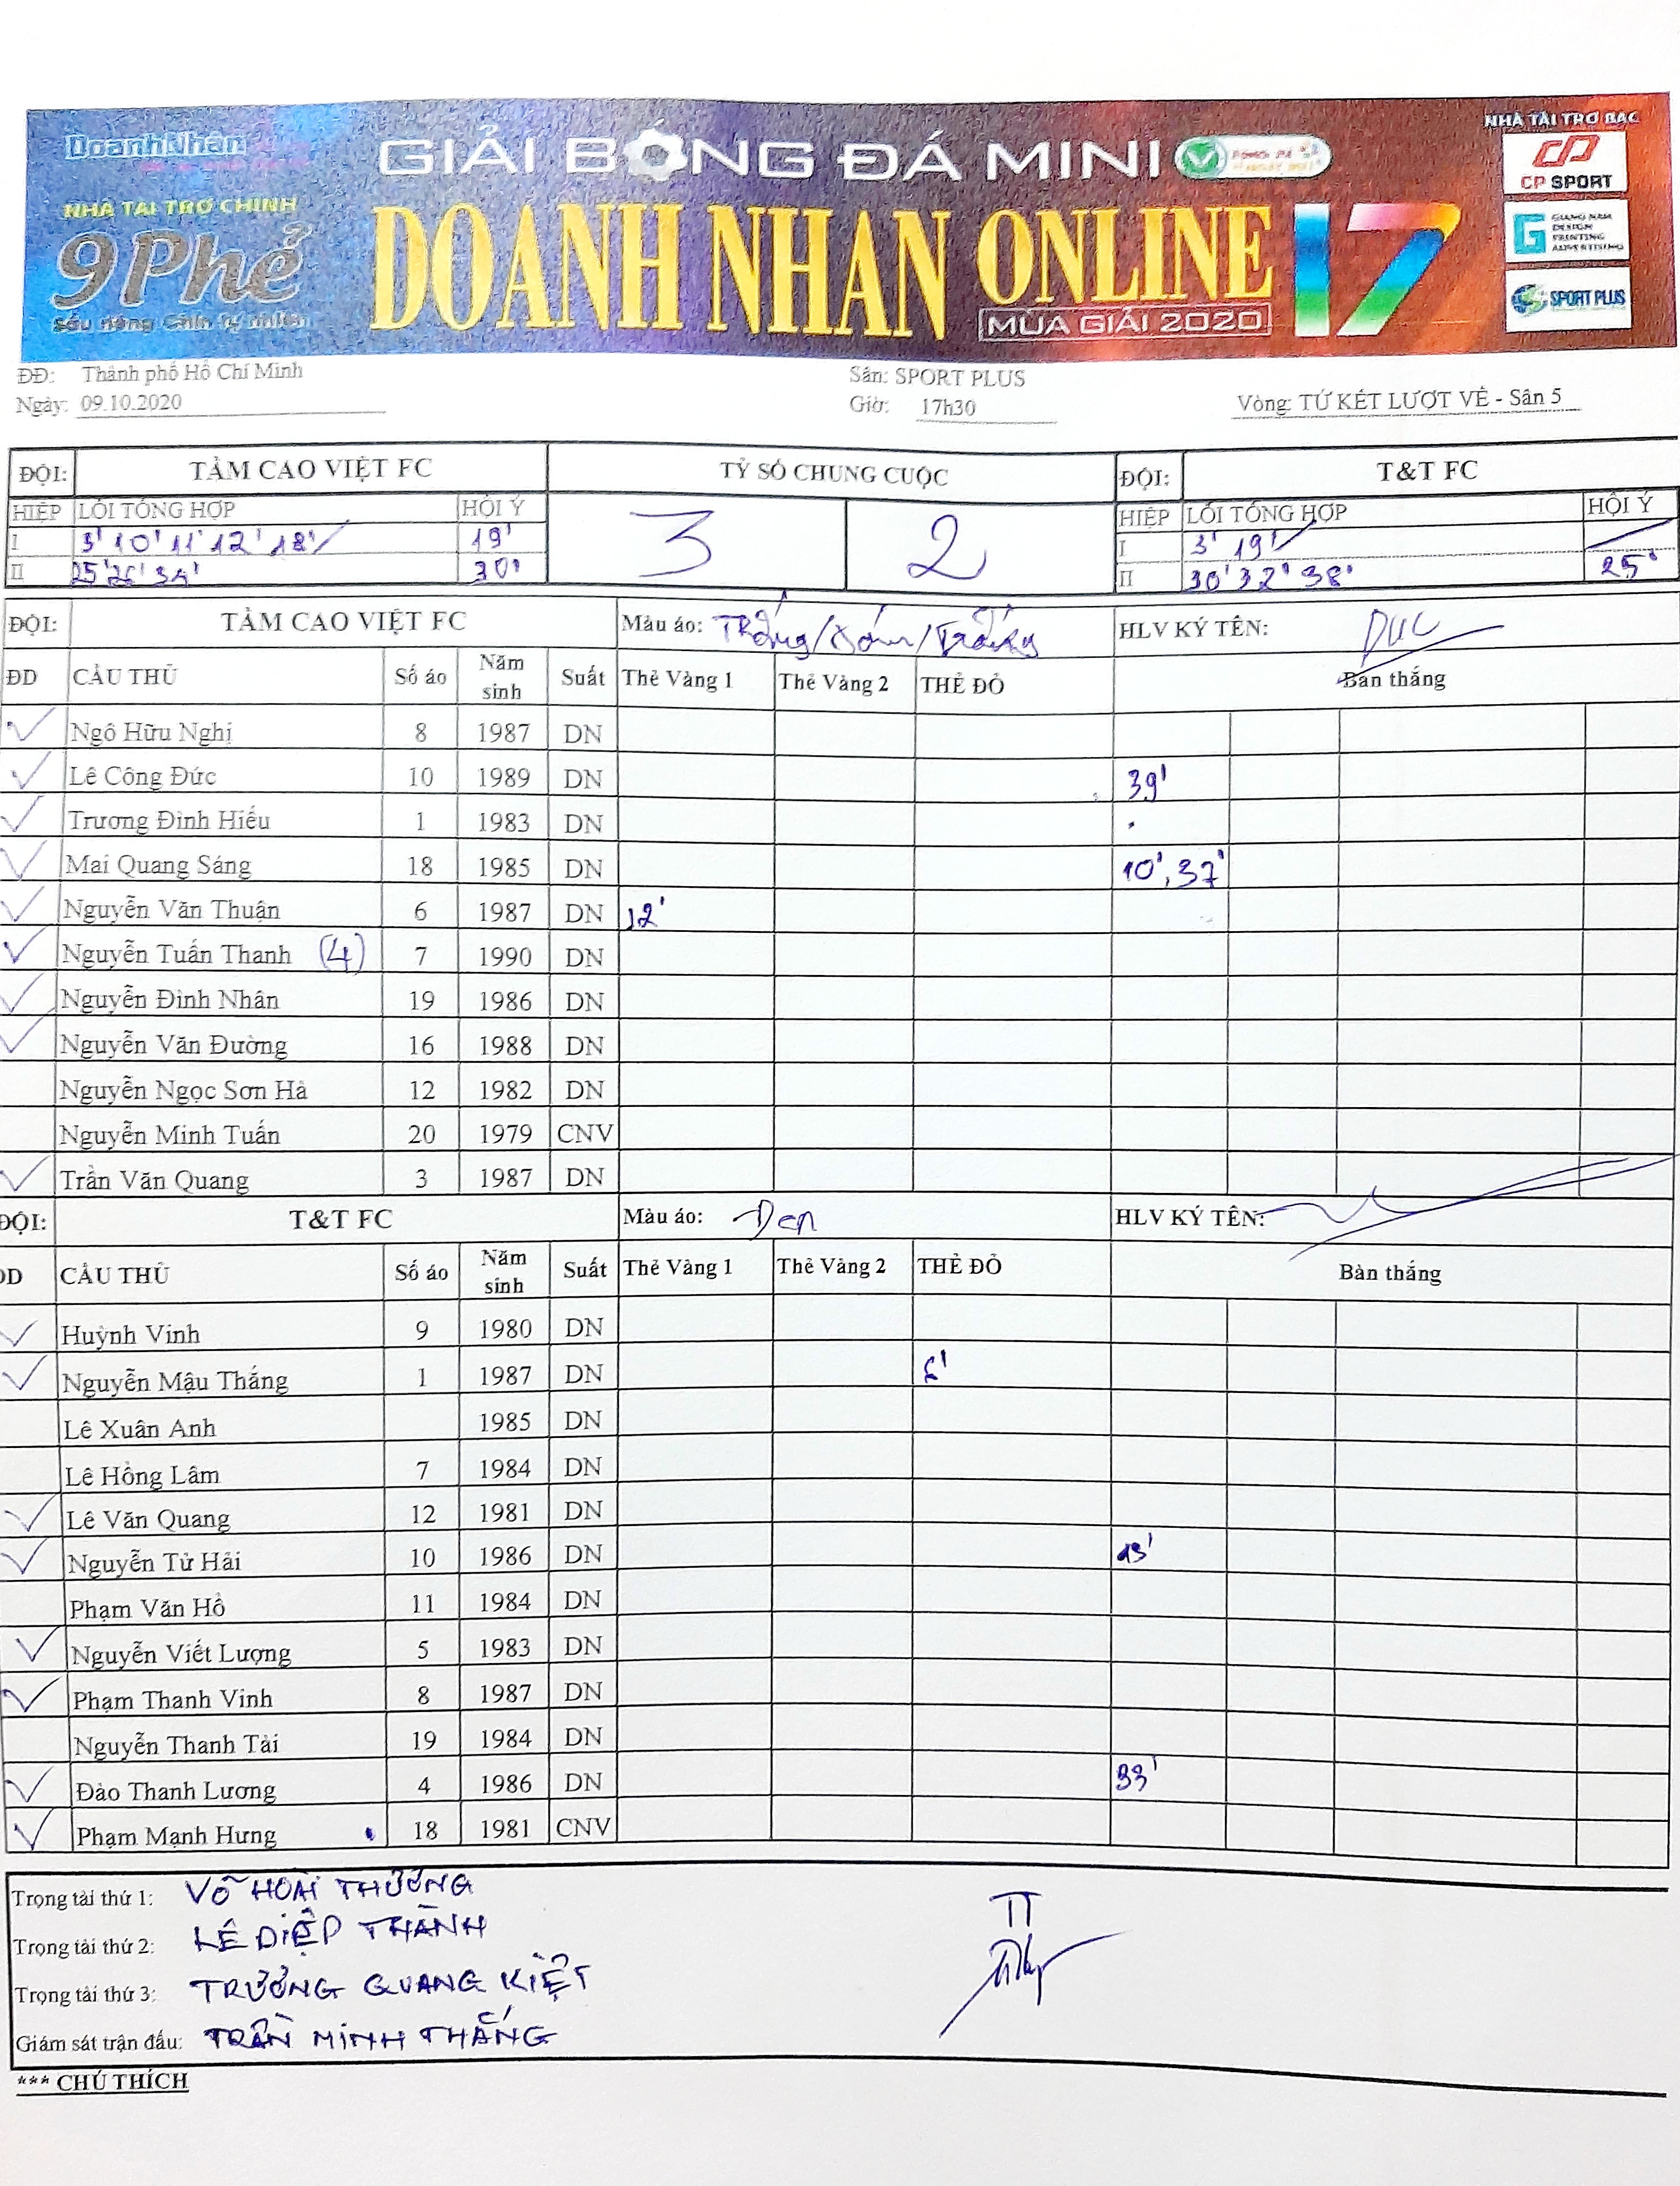 DoanhNhân
GIẢI BÓNG ĐÁ MINI
NHÀ TÀI TRỢ BẠC
CP SPORT
NHÀ TÀI TRỢ CHÍNH
9Phê
DOANH NHAN ONLINE 17
MÙA GIẢI 2020
GIANG NAM
DESIGN
PRINTING
ADVERTISING
SPORT PLUS
ĐĐ: Thành phố Hồ Chí Minh Sân: SPORT PLUS
Ngày: 09.10.2020 Giờ: 17h30 Vòng: TỨ KẾT LƯỢT VỀ - Sân 5
ĐỘI: TẦM CAO VIỆT FC TỶ SỐ CHUNG CUỘC ĐỘI: T&T FC
HIỆP LỖI TỔNG HỢP HỘI Ý 3 2 HIỆP LỖI TỔNG HỢP HỘI Ý
I 3' 10' 11' 12' 18' 19' I 3' 19'
II 25' 26' 34' 30' II 30' 32' 38' 25'
ĐỘI: TẦM CAO VIỆT FC Màu áo: Trắng/Xám/Trắng HLV KÝ TÊN: Duc
ĐD CẦU THỦ Số áo Năm sinh Suất Thẻ Vàng 1 Thẻ Vàng 2 THẺ ĐỎ Bàn thắng
Ngô Hữu Nghị 8 1987 DN
Lê Công Đức 10 1989 DN 39'
Trương Đình Hiếu 1 1983 DN
Mai Quang Sáng 18 1985 DN 10', 37'
Nguyễn Văn Thuận 6 1987 DN 12'
Nguyễn Tuấn Thanh (4) 7 1990 DN
Nguyễn Đình Nhân 19 1986 DN
Nguyễn Văn Đường 16 1988 DN
Nguyễn Ngọc Sơn Hà 12 1982 DN
Nguyễn Minh Tuấn 20 1979 CNV
Trần Văn Quang 3 1987 DN
ĐỘI: T&T FC Màu áo: Đen HLV KÝ TÊN:
ĐD CẦU THỦ Số áo Năm sinh Suất Thẻ Vàng 1 Thẻ Vàng 2 THẺ ĐỎ Bàn thắng
Huỳnh Vinh 9 1980 DN
Nguyễn Mậu Thắng 1 1987 DN 6'
Lê Xuân Anh 1985 DN
Lê Hồng Lâm 7 1984 DN
Lê Văn Quang 12 1981 DN
Nguyễn Tử Hải 10 1986 DN 13'
Phạm Văn Hồ 11 1984 DN
Nguyễn Viết Lượng 5 1983 DN
Phạm Thanh Vinh 8 1987 DN
Nguyễn Thanh Tài 19 1984 DN
Đào Thanh Lương 4 1986 DN 33'
Phạm Mạnh Hưng 18 1981 CNV
Trọng tài thứ 1: VÕ HOÀI THƯƠNG
Trọng tài thứ 2: LÊ DIỆP THÀNH
Trọng tài thứ 3: TRƯƠNG QUANG KIỆT
Giám sát trận đấu: TRẦN MINH THẮNG
TT
*** CHÚ THÍCH